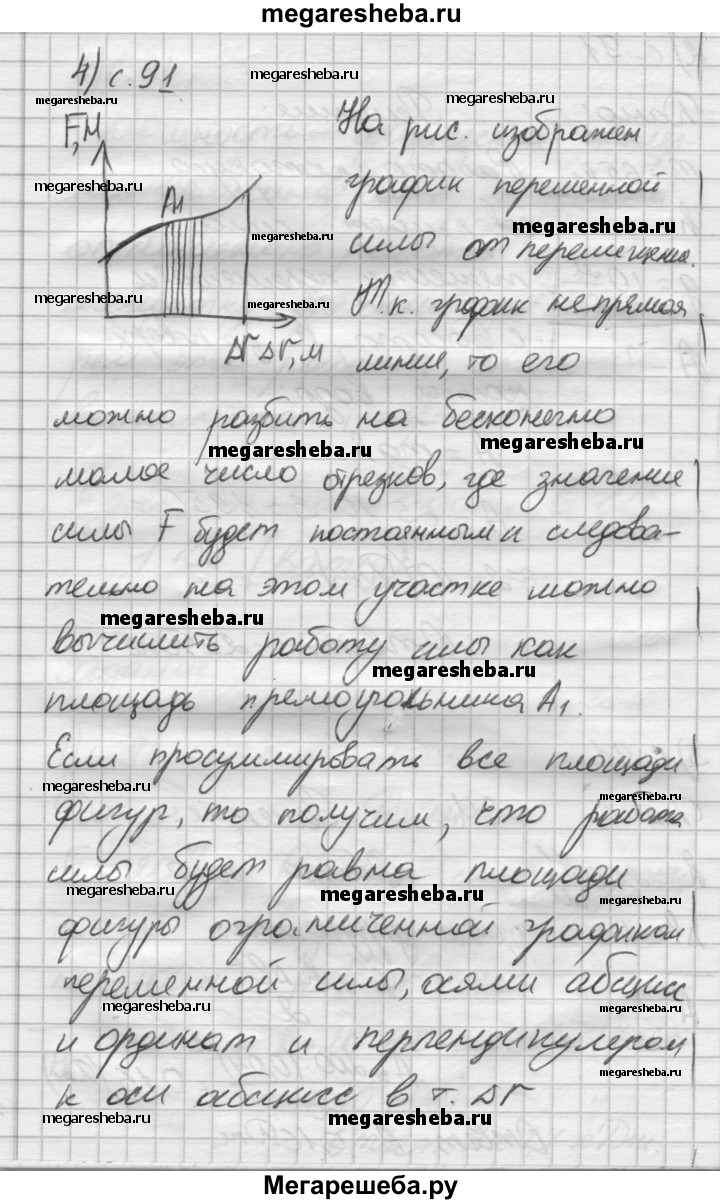 megaresheba.ru
4) с. 91
megaresheba.ru
megaresheba.ru
megaresheba.ru
F,Н
На рис. изображен
megaresheba.ru
график переменной
A1
megaresheba.ru
megaresheba.ru
силы от перемещения.
megaresheba.ru
megaresheba.ru
Т.к. график не прямая
Δr Δr, м
линие, то его
можно разбить на бесконечно
megaresheba.ru
megaresheba.ru
малое число отрезков, где значение
силы F будет постоянным и следова-
тельно на этом участке можно
megaresheba.ru
вычислить работу силы как
megaresheba.ru
площадь прямоугольника A1.
Если просуммировать все площади
megaresheba.ru
megaresheba.ru
фигур, то получим, что работа
силы будет равна площади
megaresheba.ru
megaresheba.ru
megaresheba.ru
фигуры ограниченной графиком
переменной силы, осями абцисс
megaresheba.ru
megaresheba.ru
и ординат и перпендикуляром
megaresheba.ru
к оси абсцисс в т. Δr
megaresheba.ru
megaresheba.ru
megaresheba.ru
Мегарешеба.ру